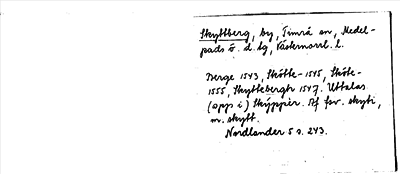 Skyttberg, by, Timrå sn, Medel-
pads ö. d. tg, Västernorrl. l.
Berge 1543, Skötte- 1545, Sköte-
1555, Skyttebergh 1547. Uttalas
(opp i) Skýppär. Af fsv. skyti,
m. skytt.
Nordlander 5 s. 243.